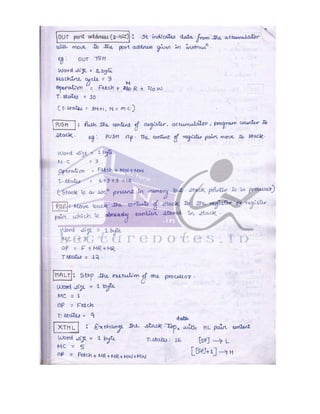 OUT port address (8-bit) : It indicates data from the accumulator
will move to the port address given in instrucn.
eg : OUT 75H
Word size = 2 byte
Machine cycle = 3
Operation = Fetch + MR + IOW
T-states = 10
PUSH : Push the content of register, accumulator, program counter to
stack. eg: PUSH rp. The content of register pair move to stack.
Word size = 1 byte
M.C = 3
Operation = Fetch + MW + MW
T-states = 6+3+3 = 12
(Stack is a locn present in memory but stack pointer is in processor)
POP : Move back the contents of stack to the register or register
pair which is already earlier stored in stack.
Word size = 1 byte
MC = 3
OP = F + MR + MR
T states = 12
lecturenotes.in
HALT : Stop the execution of the processor.
Word size = 1 byte
MC = 1
OP = Fetch
T-states = 4
XTHL : Exchange the stack top data with HL pair content
Word size = 1 byte T.states: 16 [SP] → L
MC = 5 [[SP]+1] → H
OP = Fetch + MR + MR + MW + MW